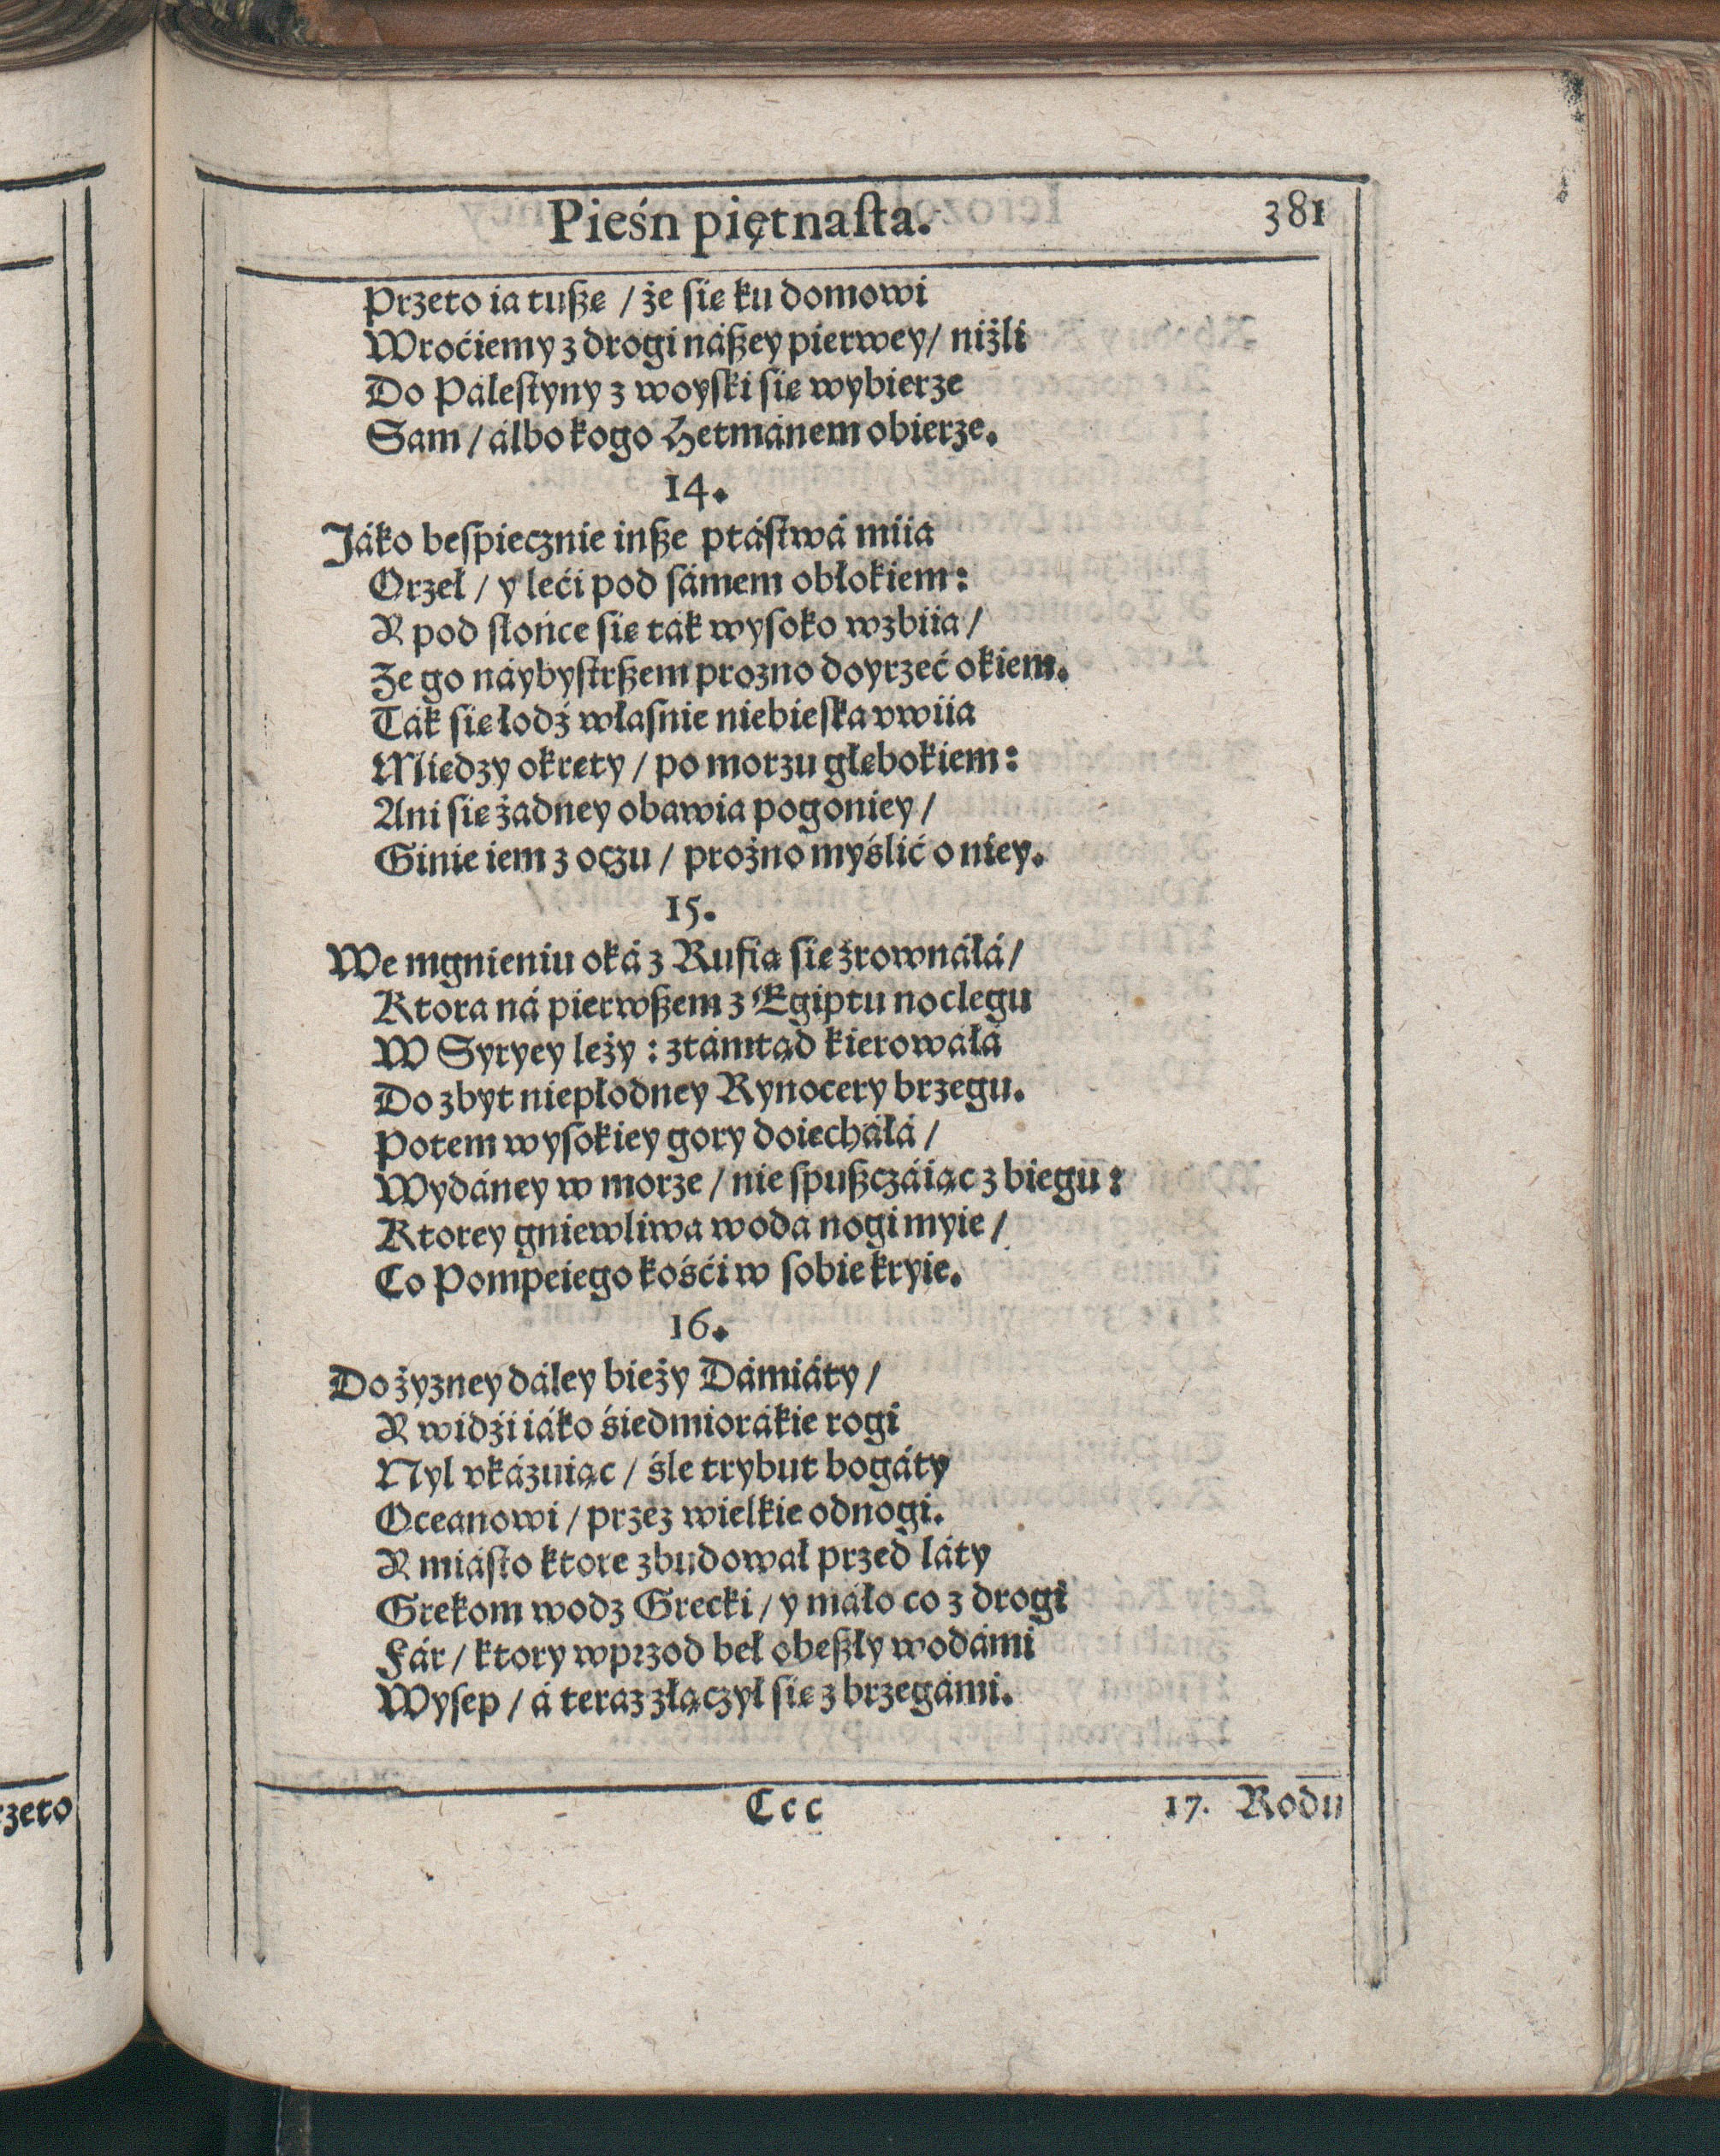 Pieśn piętnaſta. 381
Przeto ia tuſzę / że ſię ku domowi
Wroćiemy z drogi náſzey pierwey / niżli
Do Páleſtyny z woyſki ſię wybierze
Sam / álbo kogo Hetmánem obierze.
14.
Jáko beſpiecznie inſze ptáſtwá miia
Orzeł / y leći pod ſámem obłokiem:
A pod ſłońce ſię ták wyſoko wzbiia /
Że go náybyſtrſzem prozno doyrzeć okiem.
Ták ſię łodź właſnie niebieſka vwiia
Miedzy okręty / po morzu głębokiem:
Ani ſię żadney obawia pogoniey /
Ginie iem z oczu / prożno myślić o niey.
15.
We mgnieniu oká z Rufią ſię zrownáłá /
Ktora ná pierwſzem z Egiptu noclegu
W Syryey leży : ztámtąd kierowáłá
Do zbyt niepłodney Rynocery brzegu.
Potem wyſokiey gory doiecháłá /
Wydáney w morze / nie ſpuſzczáiąc z biegu:
Ktorey gniewliwa woda nogi myie /
Co Pompeiego kośći w ſobie kryie.
16.
Do żyzney dáley bieży Dámiáty /
A widźi iáko śiedmiorákie rogi
Nyl vkázuiąc / śle trybut bogáty
Oceanowi / przez wielkie odnogi.
A miáſto ktore zbudował przed láty
Grekom wodz Grecki / y máło co z drogi
Fár / ktory wprzod beł obeſzły wodámi
Wyſep / á teraz złączył ſię z brzegámi.
Ccc 17. Rodu
rzeto